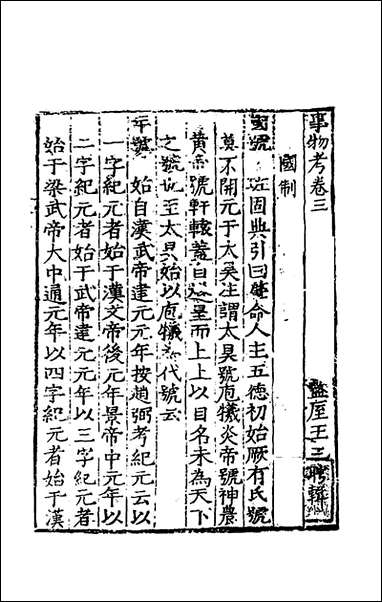 事物考卷三
盩厔王三聘輯
國制
國號 班固典引曰肇命人主五德初始厥有氏號
莫不開元于太昊注謂太昊號庖犧炎帝號神農
黃帝號軒轅蓋自 皇而上上以目名未為天下
之號也至太昊始以庖犧為代號云
年號 始自漢武帝建元元年按趙弼考紀元云以
一字紀元者始于漢文帝後元年景帝中元年以
二字紀元者始于武帝建元元年以三字紀元者
始于梁武帝大中通元年以四字紀元者始于漢